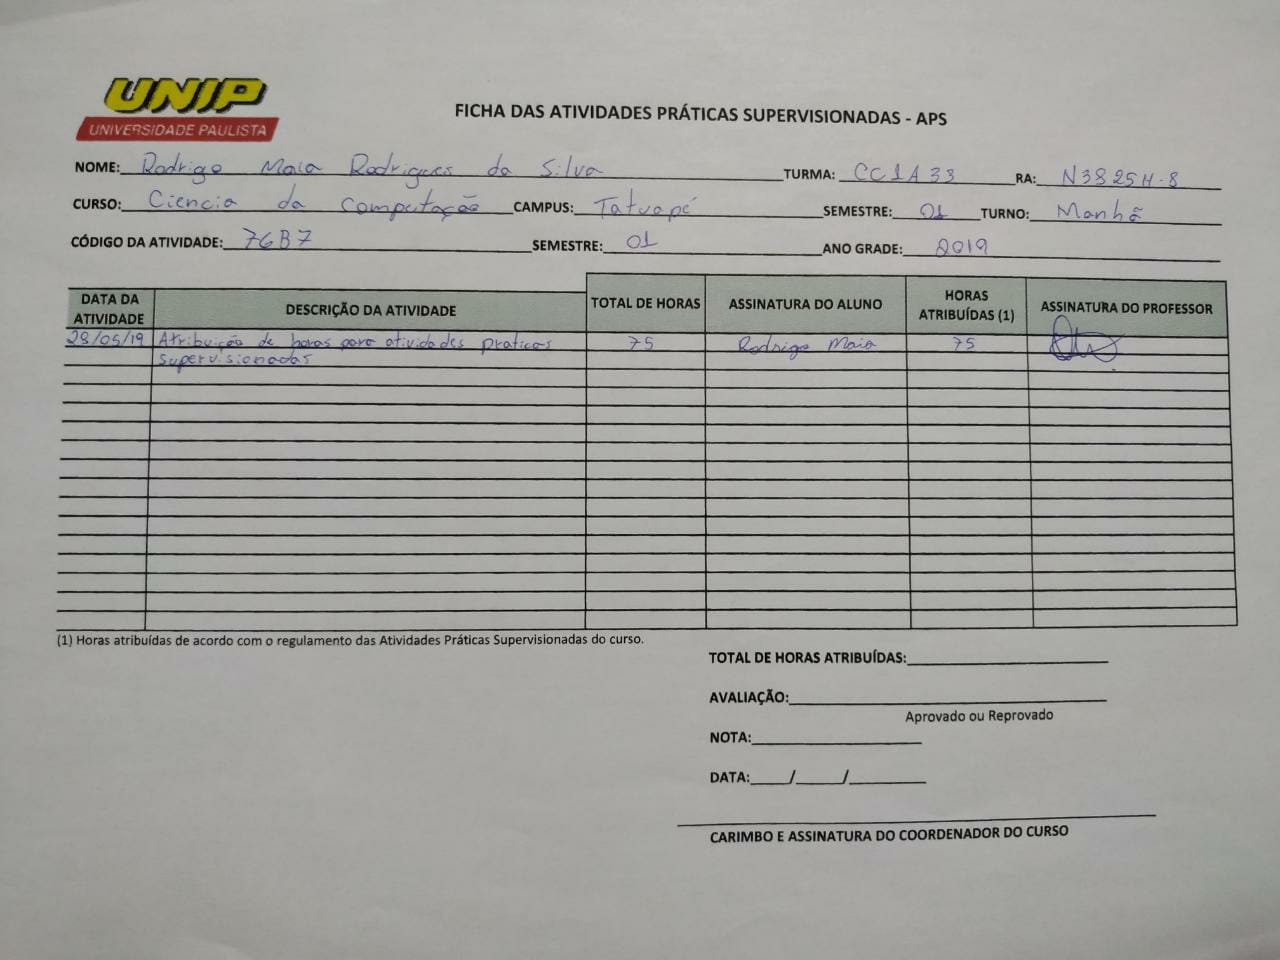 UNIP
UNIVERSIDADE PAULISTA
FICHA DAS ATIVIDADES PRÁTICAS SUPERVISIONADAS - APS
NOME: Rodrigo Maia Rodrigues da Silva TURMA: CC1A33 RA: N3825H-8
CURSO: Ciencia da Computação CAMPUS: Tatuapé SEMESTRE: 01 TURNO: Manhã
CÓDIGO DA ATIVIDADE: 76B7 SEMESTRE: 01 ANO GRADE: 2019
DATA DA ATIVIDADE DESCRIÇÃO DA ATIVIDADE TOTAL DE HORAS ASSINATURA DO ALUNO HORAS ATRIBUÍDAS (1) ASSINATURA DO PROFESSOR
28/05/19 Atribuição de horas para atividades praticas 75 Rodrigo Maia 75
supervisionadas
(1) Horas atribuídas de acordo com o regulamento das Atividades Práticas Supervisionadas do curso.
TOTAL DE HORAS ATRIBUÍDAS:
AVALIAÇÃO:
Aprovado ou Reprovado
NOTA:
DATA: / /
CARIMBO E ASSINATURA DO COORDENADOR DO CURSO